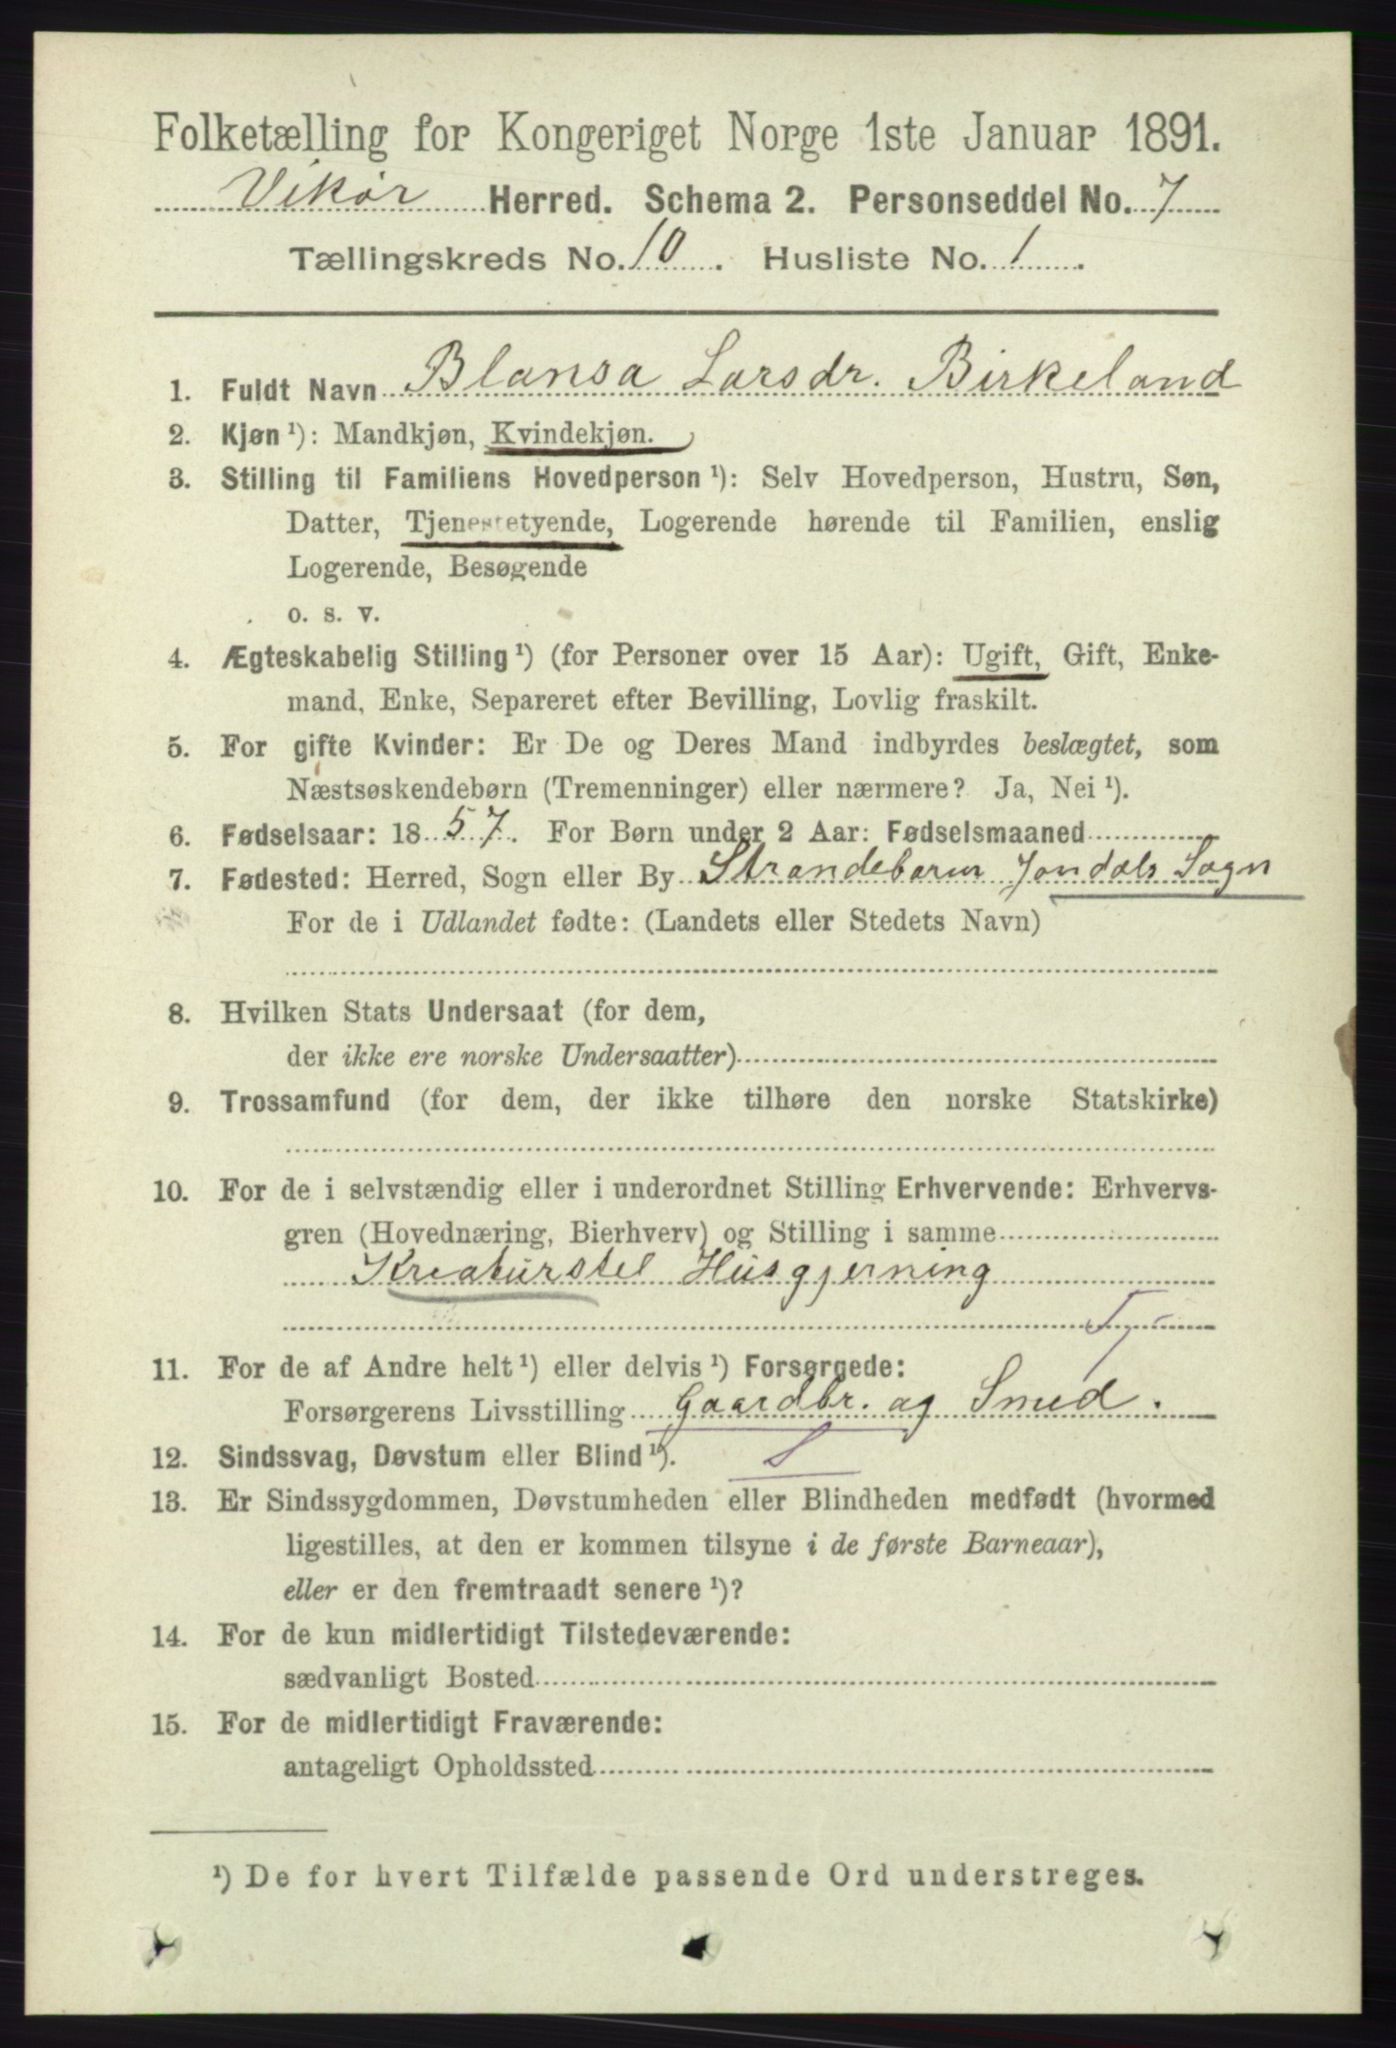 Folketælling for Kongeriget Norge 1ste Januar 1891.
Vikør Herred. Schema 2. Personseddel No. 7
Tællingskreds No. 10. Husliste No. 1.
1. Fuldt Navn Blansa Larsdr. Birkeland
2. Kjøn ¹): Mandkjøn, Kvindekjøn.
3. Stilling til Familiens Hovedperson ¹): Selv Hovedperson, Hustru, Søn,
Datter, Tjenestetyende, Logerende hørende til Familien, enslig
Logerende, Besøgende
o. s. v.
4. Ægteskabelig Stilling ¹) (for Personer over 15 Aar): Ugift, Gift, Enke-
mand, Enke, Separeret efter Bevilling, Lovlig fraskilt.
5. For gifte Kvinder: Er De og Deres Mand indbyrdes beslægtet, som
Næstsøskendebørn (Tremenninger) eller nærmere? Ja, Nei ¹).
6. Fødselsaar: 1857. For Børn under 2 Aar: Fødselsmaaned
7. Fødested: Herred, Sogn eller By Strandebarm Jondals Sogn
For de i Udlandet fødte: (Landets eller Stedets Navn)
8. Hvilken Stats Undersaat (for dem,
der ikke ere norske Undersaatter)
9. Trossamfund (for dem, der ikke tilhøre den norske Statskirke)
10. For de i selvstændig eller i underordnet Stilling Erhvervende: Erhvervs-
gren (Hovednæring, Bierhverv) og Stilling i samme
Kreaturstel Husgjerning
11. For de af Andre helt ¹) eller delvis ¹) Forsørgede:
Forsørgerens Livsstilling Gaardbr. og Smed.
12. Sindssvag, Døvstum eller Blind ¹).
13. Er Sindssygdommen, Døvstumheden eller Blindheden medfødt (hvormed
ligestilles, at den er kommen tilsyne i de første Barneaar),
eller er den fremtraadt senere ¹)?
14. For de kun midlertidigt Tilstedeværende:
sædvanligt Bosted
15. For de midlertidigt Fraværende:
antageligt Opholdssted
¹) De for hvert Tilfælde passende Ord understreges.